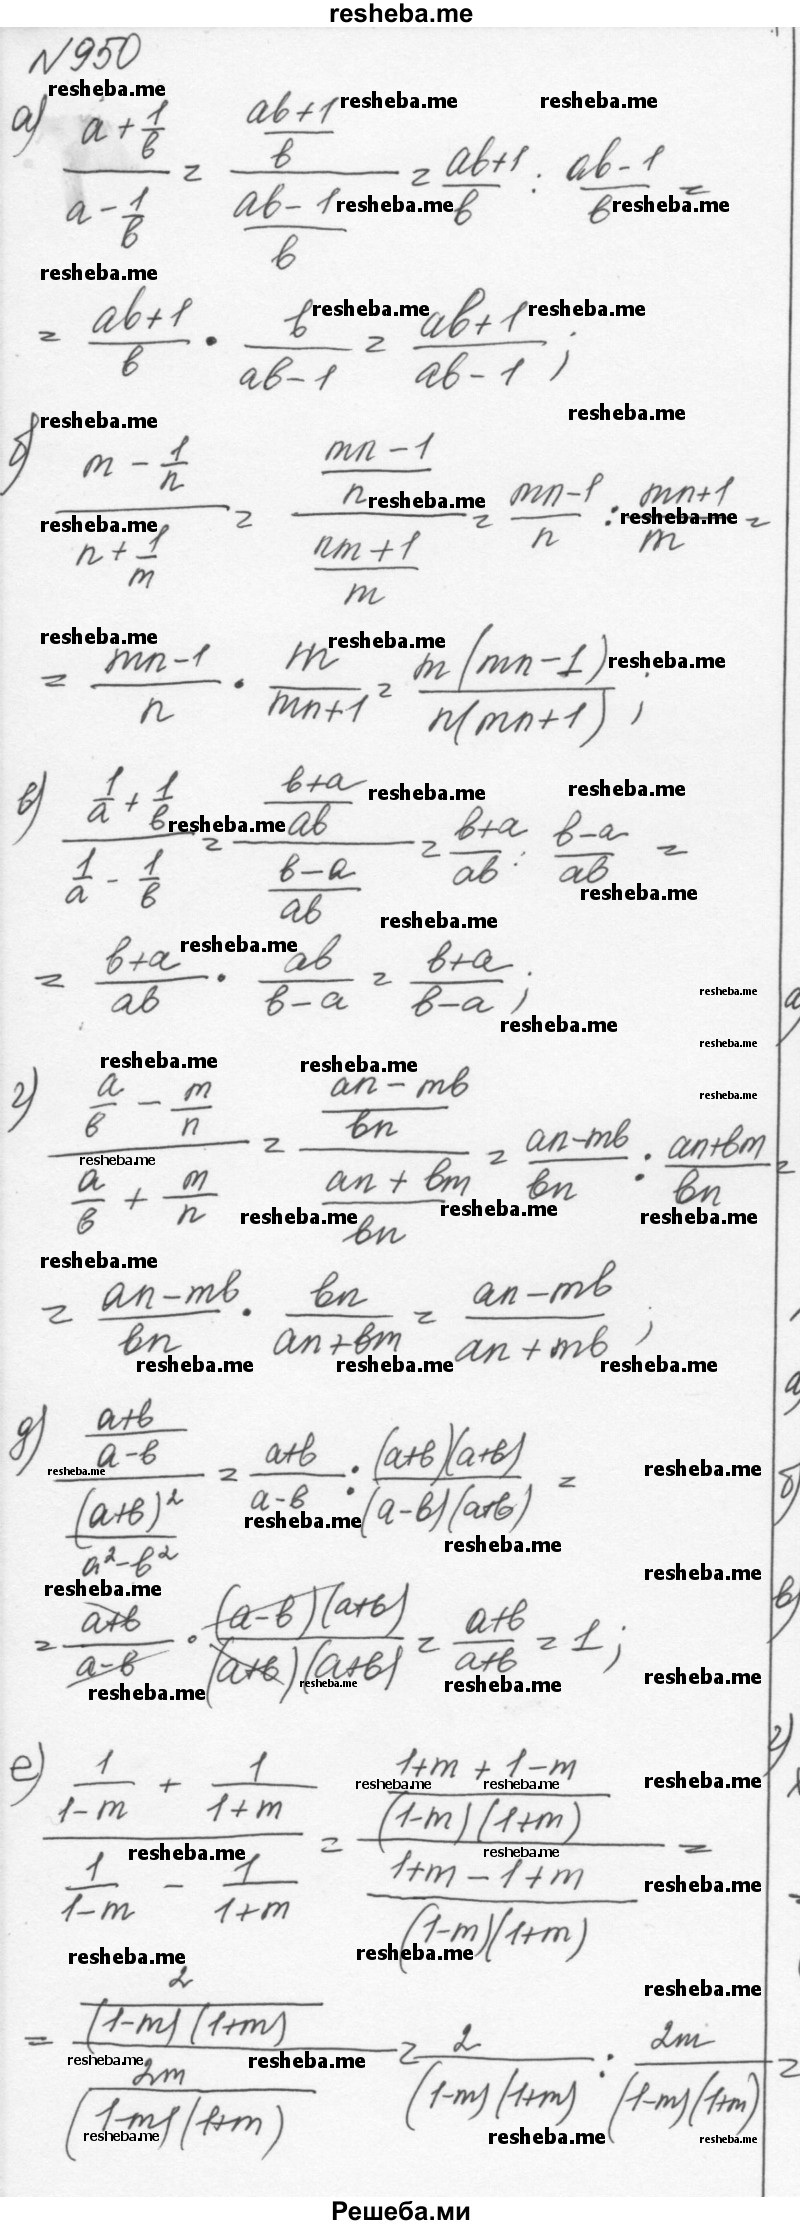 resheba.me
№950
а) (a + 1/b)/(a - 1/b) = ((ab+1)/b)/((ab-1)/b) = (ab+1)/b : (ab-1)/b =
= (ab+1)/b • b/(ab-1) = (ab+1)/(ab-1);
б) (m - 1/n)/(n + 1/m) = ((mn-1)/n)/((nm+1)/m) = (mn-1)/n : (mn+1)/m =
= (mn-1)/n • m/(mn+1) = m(mn-1)/n(mn+1);
в) (1/a + 1/b)/(1/a - 1/b) = ((b+a)/ab)/((b-a)/ab) = (b+a)/ab : (b-a)/ab =
= (b+a)/ab • ab/(b-a) = (b+a)/(b-a);
г) (a/b - m/n)/(a/b + m/n) = ((an-mb)/bn)/((an+bm)/bn) = (an-mb)/bn : (an+bm)/bn =
= (an-mb)/bn • bn/(an+bm) = (an-mb)/(an+mb);
д) ((a+b)/(a-b))/((a+b)²/(a²-b²)) = (a+b)/(a-b) : (a+b)(a+b)/(a-b)(a+b) =
= (a+b)/(a-b) • (a-b)(a+b)/(a+b)(a+b) = (a+b)/(a+b) = 1;
е) (1/(1-m) + 1/(1+m))/(1/(1-m) - 1/(1+m)) = ((1+m+1-m)/(1-m)(1+m))/((1+m-1+m)/(1-m)(1+m)) =
= (2/(1-m)(1+m))/(2m/(1-m)(1+m)) = 2/(1-m)(1+m) : 2m/(1-m)(1+m) =
Решеба.ми